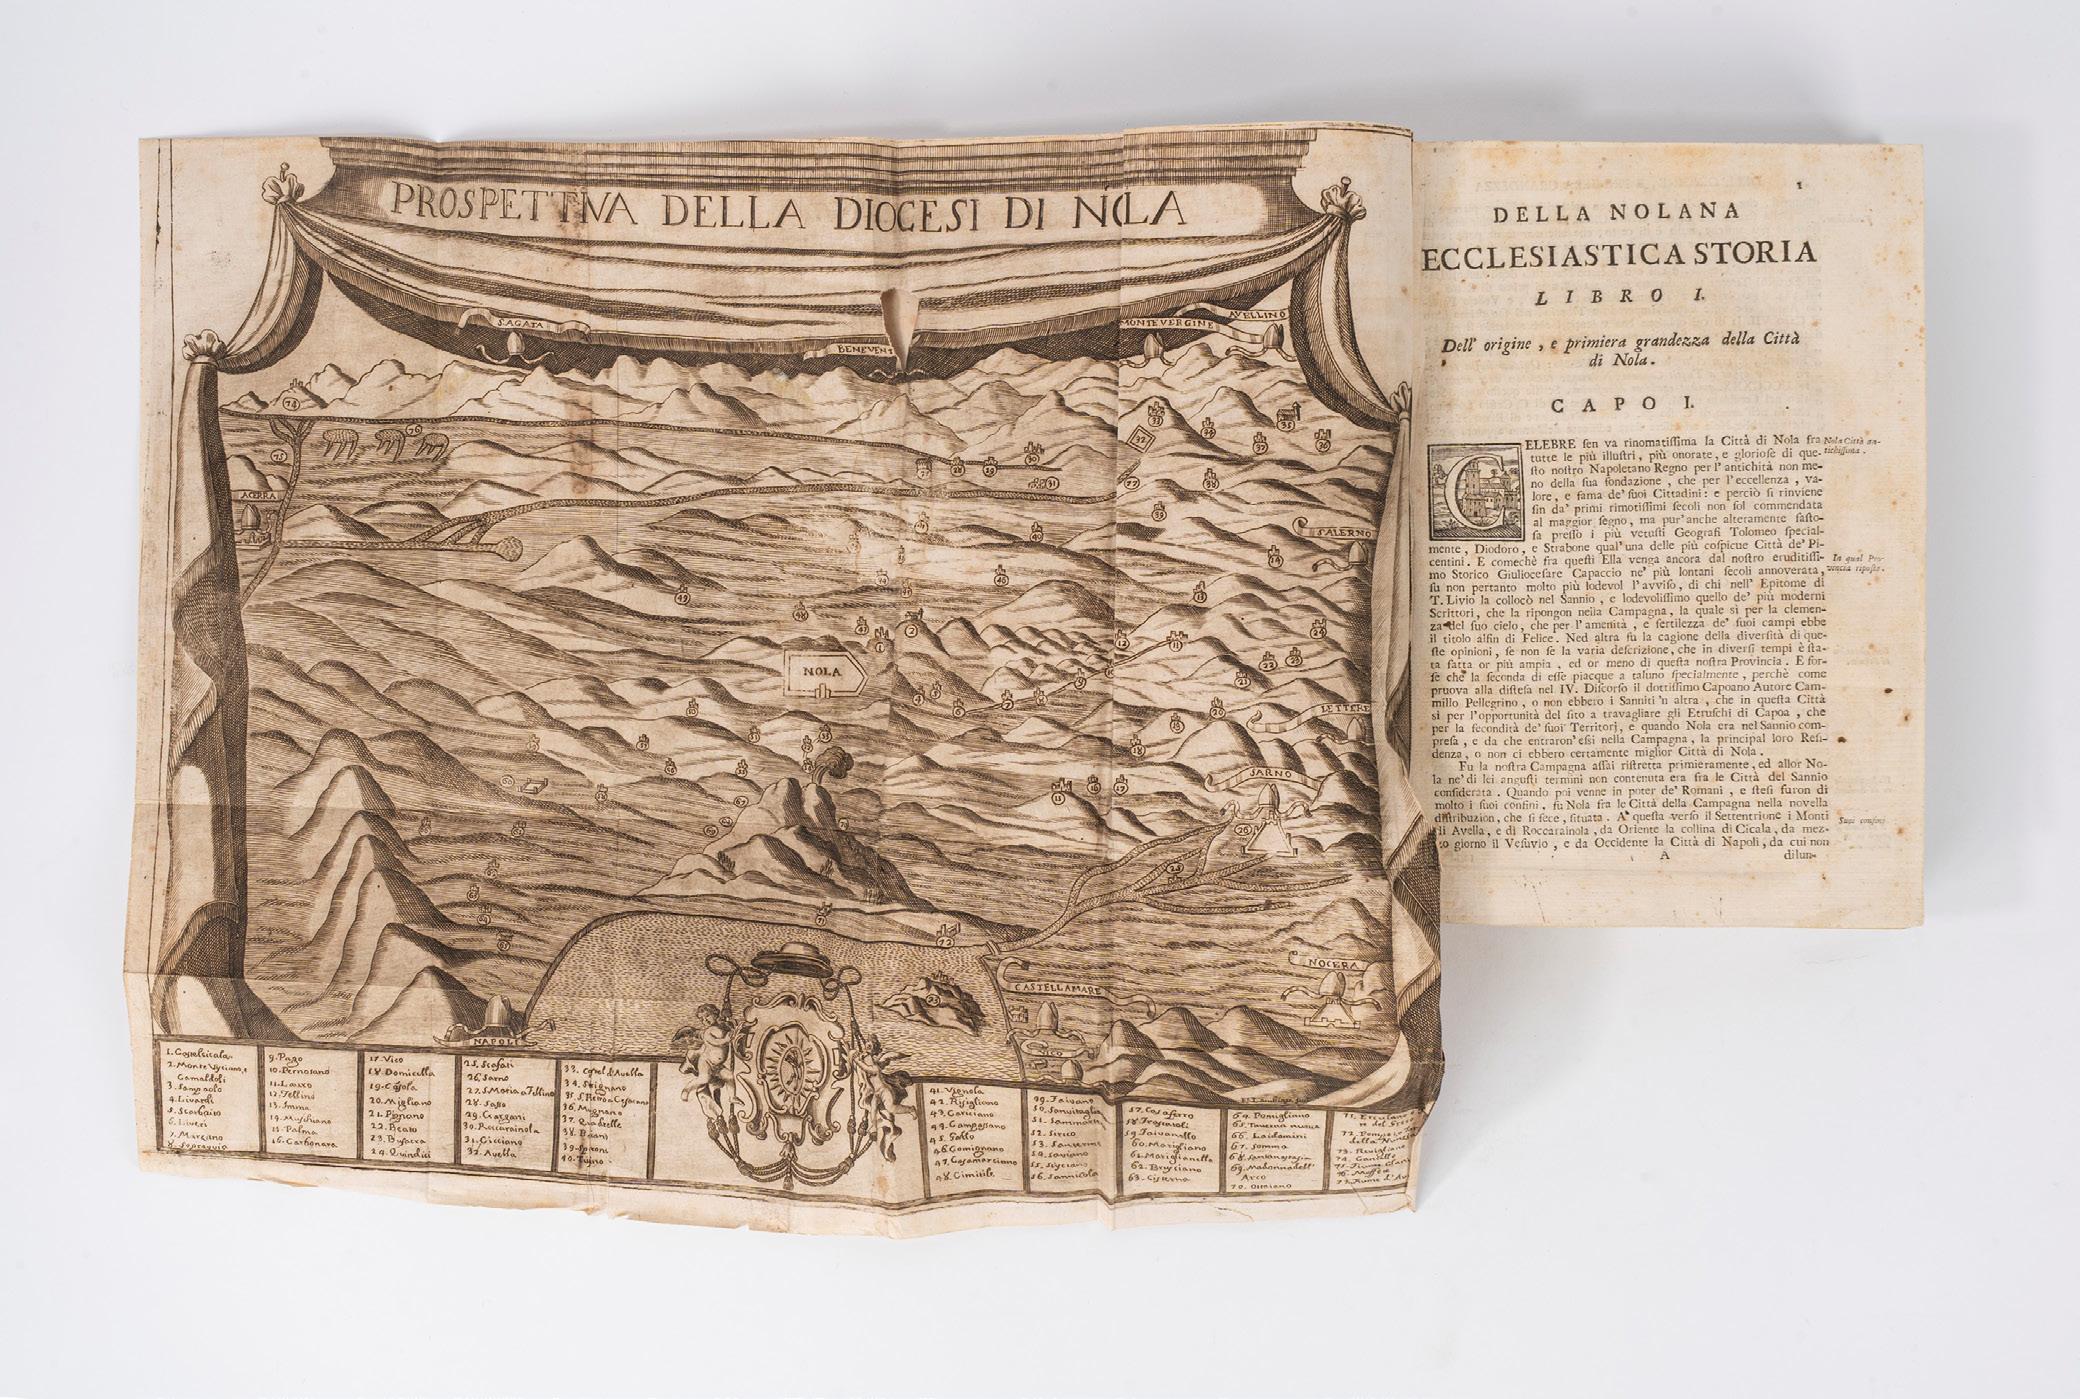 PROSPETTIVA DELLA DIOCESI DI NOLA
S. AGATA
BENEVENT
MONTEVERGINE
AVELLINO
ACERRA
SALERNO
NOLA
LETTERE
SARNO
NOCERA
CASTELLAMARE
VICO
NAPOLI
1. Castelcicala
2. Monte Vyciano, e
Camaldoli
3. Sampaolo
4. Livardi
5. Scarvaito
6. Liveri
7. Marzano
8. Sopravia
9. Pago
10. Pernosano
11. Lauro
12. Tellino
13. Imma
14. Muschiano
15. Palma
16. Carbonara
17. Vico
18. Domicella
19. Casola
20. Migliano
21. Pignano
22. Beato
23. Busacra
24. Quindici
25. Scafati
26. Sarno
27. S. Maria a Fellino
28. Sasso
29. Gargani
30. Roccarainola
31. Cicciano
32. Avella
33. Castel d'Avella
34. Sirignano
35. S. Pietro a Cesarano
36. Mugnano
37. Quadrelle
38. Baiani
39. Sperone
40. Tufino
41. Vignola
42. Risigliano
43. Gariciano
44. Campasano
45. Gallo
46. Comignano
47. Casamarciano
48. Cimitile
49. Faivano
50. Sanvitaglia
51. Sammarco
52. Sirico
53. Sanerme
54. Saviano
55. Sisciano
56. Sannicola
57. Casaferro
58. Frascatoli
59. Faivanello
60. Marigliano
61. Mariglianella
62. Brusciano
63. Cisterna
64. Pomigliano
65. Taverna nuova
66. Laidomini
67. Somma
68. Santanastasia
69. Madonna dell'
Arco
70. Ottaiano
DELLA NOLANA
ECCLESIASTICA STORIA
LIBRO I.
Dell' origine, e primiera grandezza della Città
di Nola.
CAPO I.
1
CELEBRE sen va rinomatissima la Città di Nola fra
tutte le più illustri, più onorate, e gloriose di que-
sto nostro Napoletano Regno per l'antichità non me-
no della sua fondazione, che per l'eccellenza, va-
lore, e fama de' suoi Cittadini: e perciò si rinviene
sin da' primi rimotissimi secoli non sol commendata
al maggior segno, ma pur' anche alteramente fasto-
sa presso i più vetusti Geografi Tolomeo special-
mente, Diodoro, e Strabone qual'una delle più cospicue Città de' Pi-
centini. E comechè fra questi Ella venga ancora dal nostro eruditissi-
mo Storico Giuliocesare Capaccio ne' più lontani secoli annoverata,
fu non pertanto molto più lodevol l'avviso, di chi nell' Epitome di
T. Livio la collocò nel Sannio, e lodevolissimo quello de' più moderni
Scrittori, che la ripongon nella Campagna, la quale sì per la clemen-
za del suo cielo, che per l'amenità, e fertilezza de' suoi campi ebbe
il titolo alfin di Felice. Ned altra fu la cagione della diversità di que-
ste opinioni, se non se la varia descrizione, che in diversi tempi è sta-
ta fatta or più ampia, ed or meno di questa nostra Provincia. E for-
se che la seconda di esse piacque a taluno specialmente, perchè come
pruova alla distesa nel IV. Discorso il dottissimo Capoano Autore Cam-
millo Pellegrino, o non ebbero i Sanniti 'n altra, che in questa Città
sì per l'opportunità del sito a travagliare gli Etruschi di Capoa, che
per la secondità de' suoi Territorj, e quando Nola era nel Sannio com-
presa, e da che entraron' essi nella Campagna, la principal loro Resi-
denza, o non ci ebbero certamente miglior Città di Nola.
Fu la nostra Campagna assai ristretta primieramente, ed allor No-
la ne' di lei angusti termini non contenuta era fra le Città del Sannio
considerata. Quando poi venne in poter de' Romani, e stesi furon di
molto i suoi confini, fu Nola fra le Città della Campagna nella novella
distribuzion, che si fece, situata. A questa verso il Settentrione i Monti
di Avella, e di Roccarainola, da Oriente la collina di Cicala, da mez-
zo giorno il Vesuvio, e da Occidente la Città di Napoli, da cui non
A
dilun-
Nola Città an-
tichissima.
In qual Pro-
vincia riposta.
Suoi confini